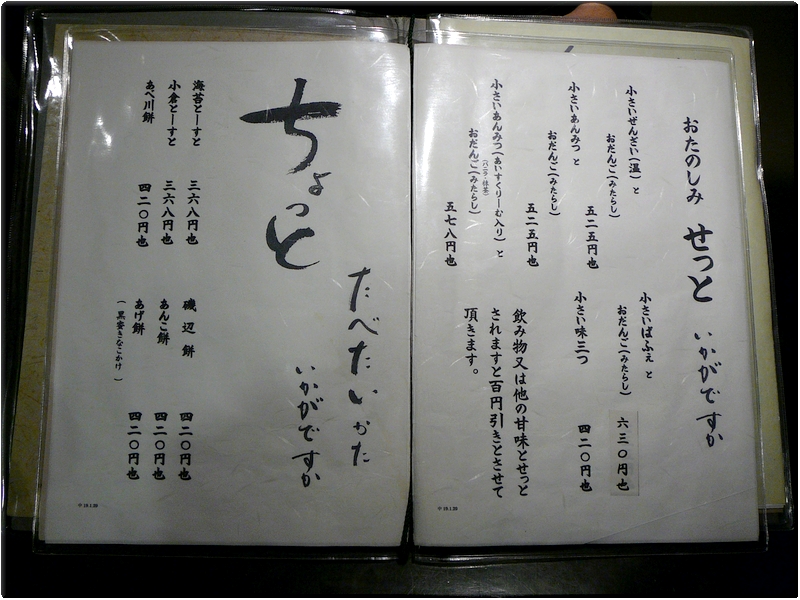 おたのしみ せっと いかがですか
小さいぜんざい(温)と
おだんご(みたらし)
五二五円也
小さいあんみつ と
おだんご(みたらし)
五二五円也
小さいあんみつ(あいすくりーむ入り) と
(バニラ・抹茶)
おだんご(みたらし)
五七八円也
小さいぱふぇ と
おだんご(みたらし)
六三〇円也
小さい味三つ
四二〇円也
飲み物又は他の甘味とせっと
されますと百円引きとさせて
頂きます。
ちょっと
たべたいかた
いかがですか
海苔とーすと 三六八円也
小倉とーすと 三六八円也
あべ川餅 四二〇円也
磯辺餅 四二〇円也
あんこ餅 四二〇円也
あげ餅 四二〇円也
(黒蜜きなこかけ)